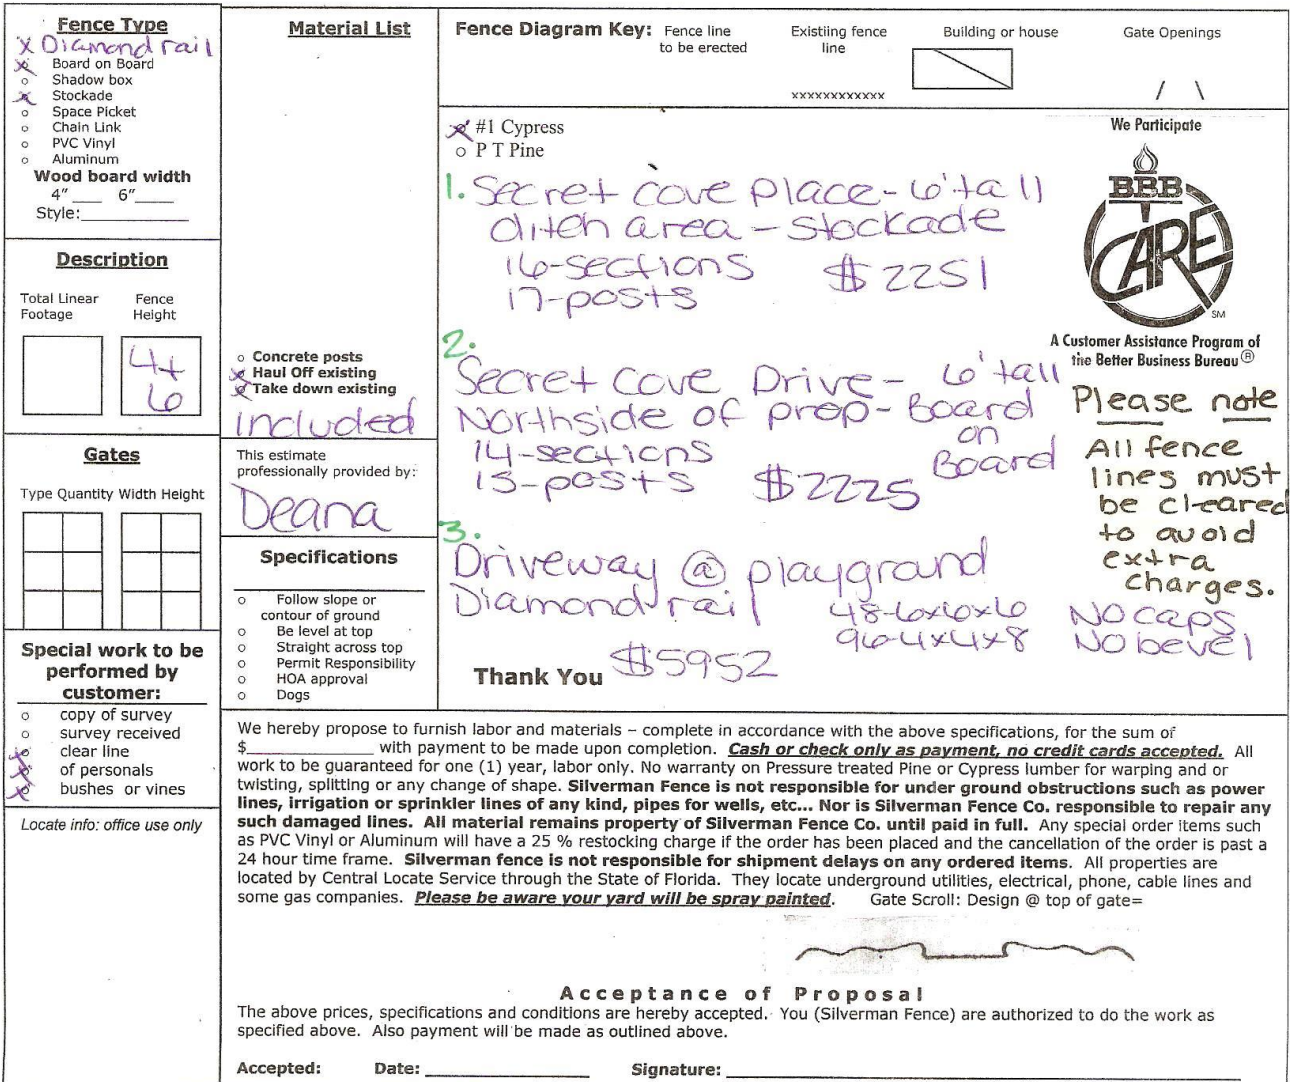 Fence Type
x Diamond rail
x Board on Board
o Shadow box
x Stockade
o Space Picket
o Chain Link
o PVC Vinyl
o Aluminum
Wood board width
4"___ 6"____
Style:___________
Description
Total Linear Footage
Fence Height
4+
6
Gates
Type Quantity Width Height
Special work to be
performed by
customer:
o copy of survey
o survey received
x clear line
x of personals
x bushes or vines
Locate info: office use only
Material List
o Concrete posts
x Haul Off existing
x Take down existing
included
This estimate
professionally provided by:
Deana
Specifications
o Follow slope or
contour of ground
o Be level at top
o Straight across top
o Permit Responsibility
o HOA approval
o Dogs
Fence Diagram Key:
Fence line
to be erected
Existiing fence
line
xxxxxxxxxxxx
Building or house
Gate Openings
/ \
x #1 Cypress
o P T Pine
1. Secret cove place - 6' tall
ditch area - stockade
16-sections $2251
17-posts
2.
Secret Cove Drive - 6' tall
Northside of prop - Board
on
Board
14-sections
15-posts $2225
3.
Driveway @ playground
Diamond rail
48-6x6x6
96-4x4x8
No caps
No bevel
$5952
Thank You
We Participate
BBB
CARE
SM
A Customer Assistance Program of
the Better Business Bureau ®
Please note
All fence
lines must
be cleared
to avoid
extra
charges.
We hereby propose to furnish labor and materials – complete in accordance with the above specifications, for the sum of
$_____________ with payment to be made upon completion. Cash or check only as payment, no credit cards accepted. All
work to be guaranteed for one (1) year, labor only. No warranty on Pressure treated Pine or Cypress lumber for warping and or
twisting, splitting or any change of shape. Silverman Fence is not responsible for under ground obstructions such as power
lines, irrigation or sprinkler lines of any kind, pipes for wells, etc... Nor is Silverman Fence Co. responsible to repair any
such damaged lines. All material remains property of Silverman Fence Co. until paid in full. Any special order items such
as PVC Vinyl or Aluminum will have a 25 % restocking charge if the order has been placed and the cancellation of the order is past a
24 hour time frame. Silverman fence is not responsible for shipment delays on any ordered items. All properties are
located by Central Locate Service through the State of Florida. They locate underground utilities, electrical, phone, cable lines and
some gas companies. Please be aware your yard will be spray painted. Gate Scroll: Design @ top of gate=
Acceptance of Proposal
The above prices, specifications and conditions are hereby accepted. You (Silverman Fence) are authorized to do the work as
specified above. Also payment will be made as outlined above.
Accepted: Date: ________________ Signature: ________________